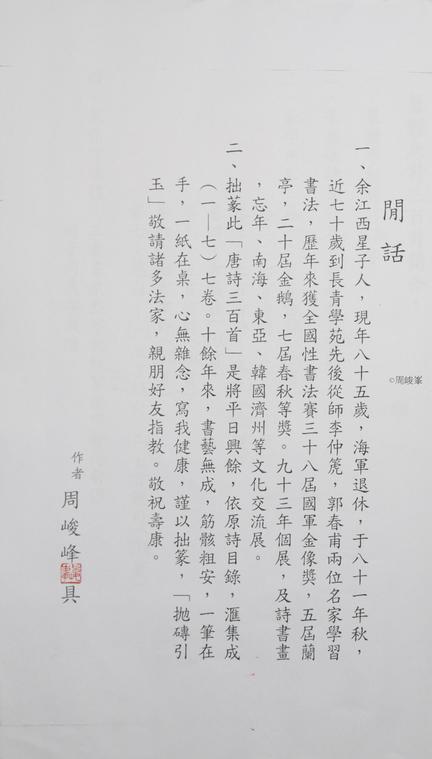 閒話
一、余江西星子人，現年八十五歲，海軍退休，于八十一年秋，
近七十歲到長青學苑先後從師李仲箎，郭春甫兩位名家學習
書法，歷年來獲全國性書法賽三十八屆國軍金像獎，五屆蘭
亭，二十屆金鵝，七屆春秋等獎。九十三年個展，及詩書畫
，忘年、南海、東亞、韓國濟州等文化交流展。
二、拙篆此「唐詩三百首」是將平日興餘，依原詩目錄，滙集成
（一—七）七卷。十餘年來，書藝無成，筋骸粗安，一筆在
手，一紙在桌，心無雜念，寫我健康，謹以拙篆，「抛磚引
玉」敬請諸多法家，親朋好友指教。敬祝壽康。
作者 周峻峰 具
©周峻峯